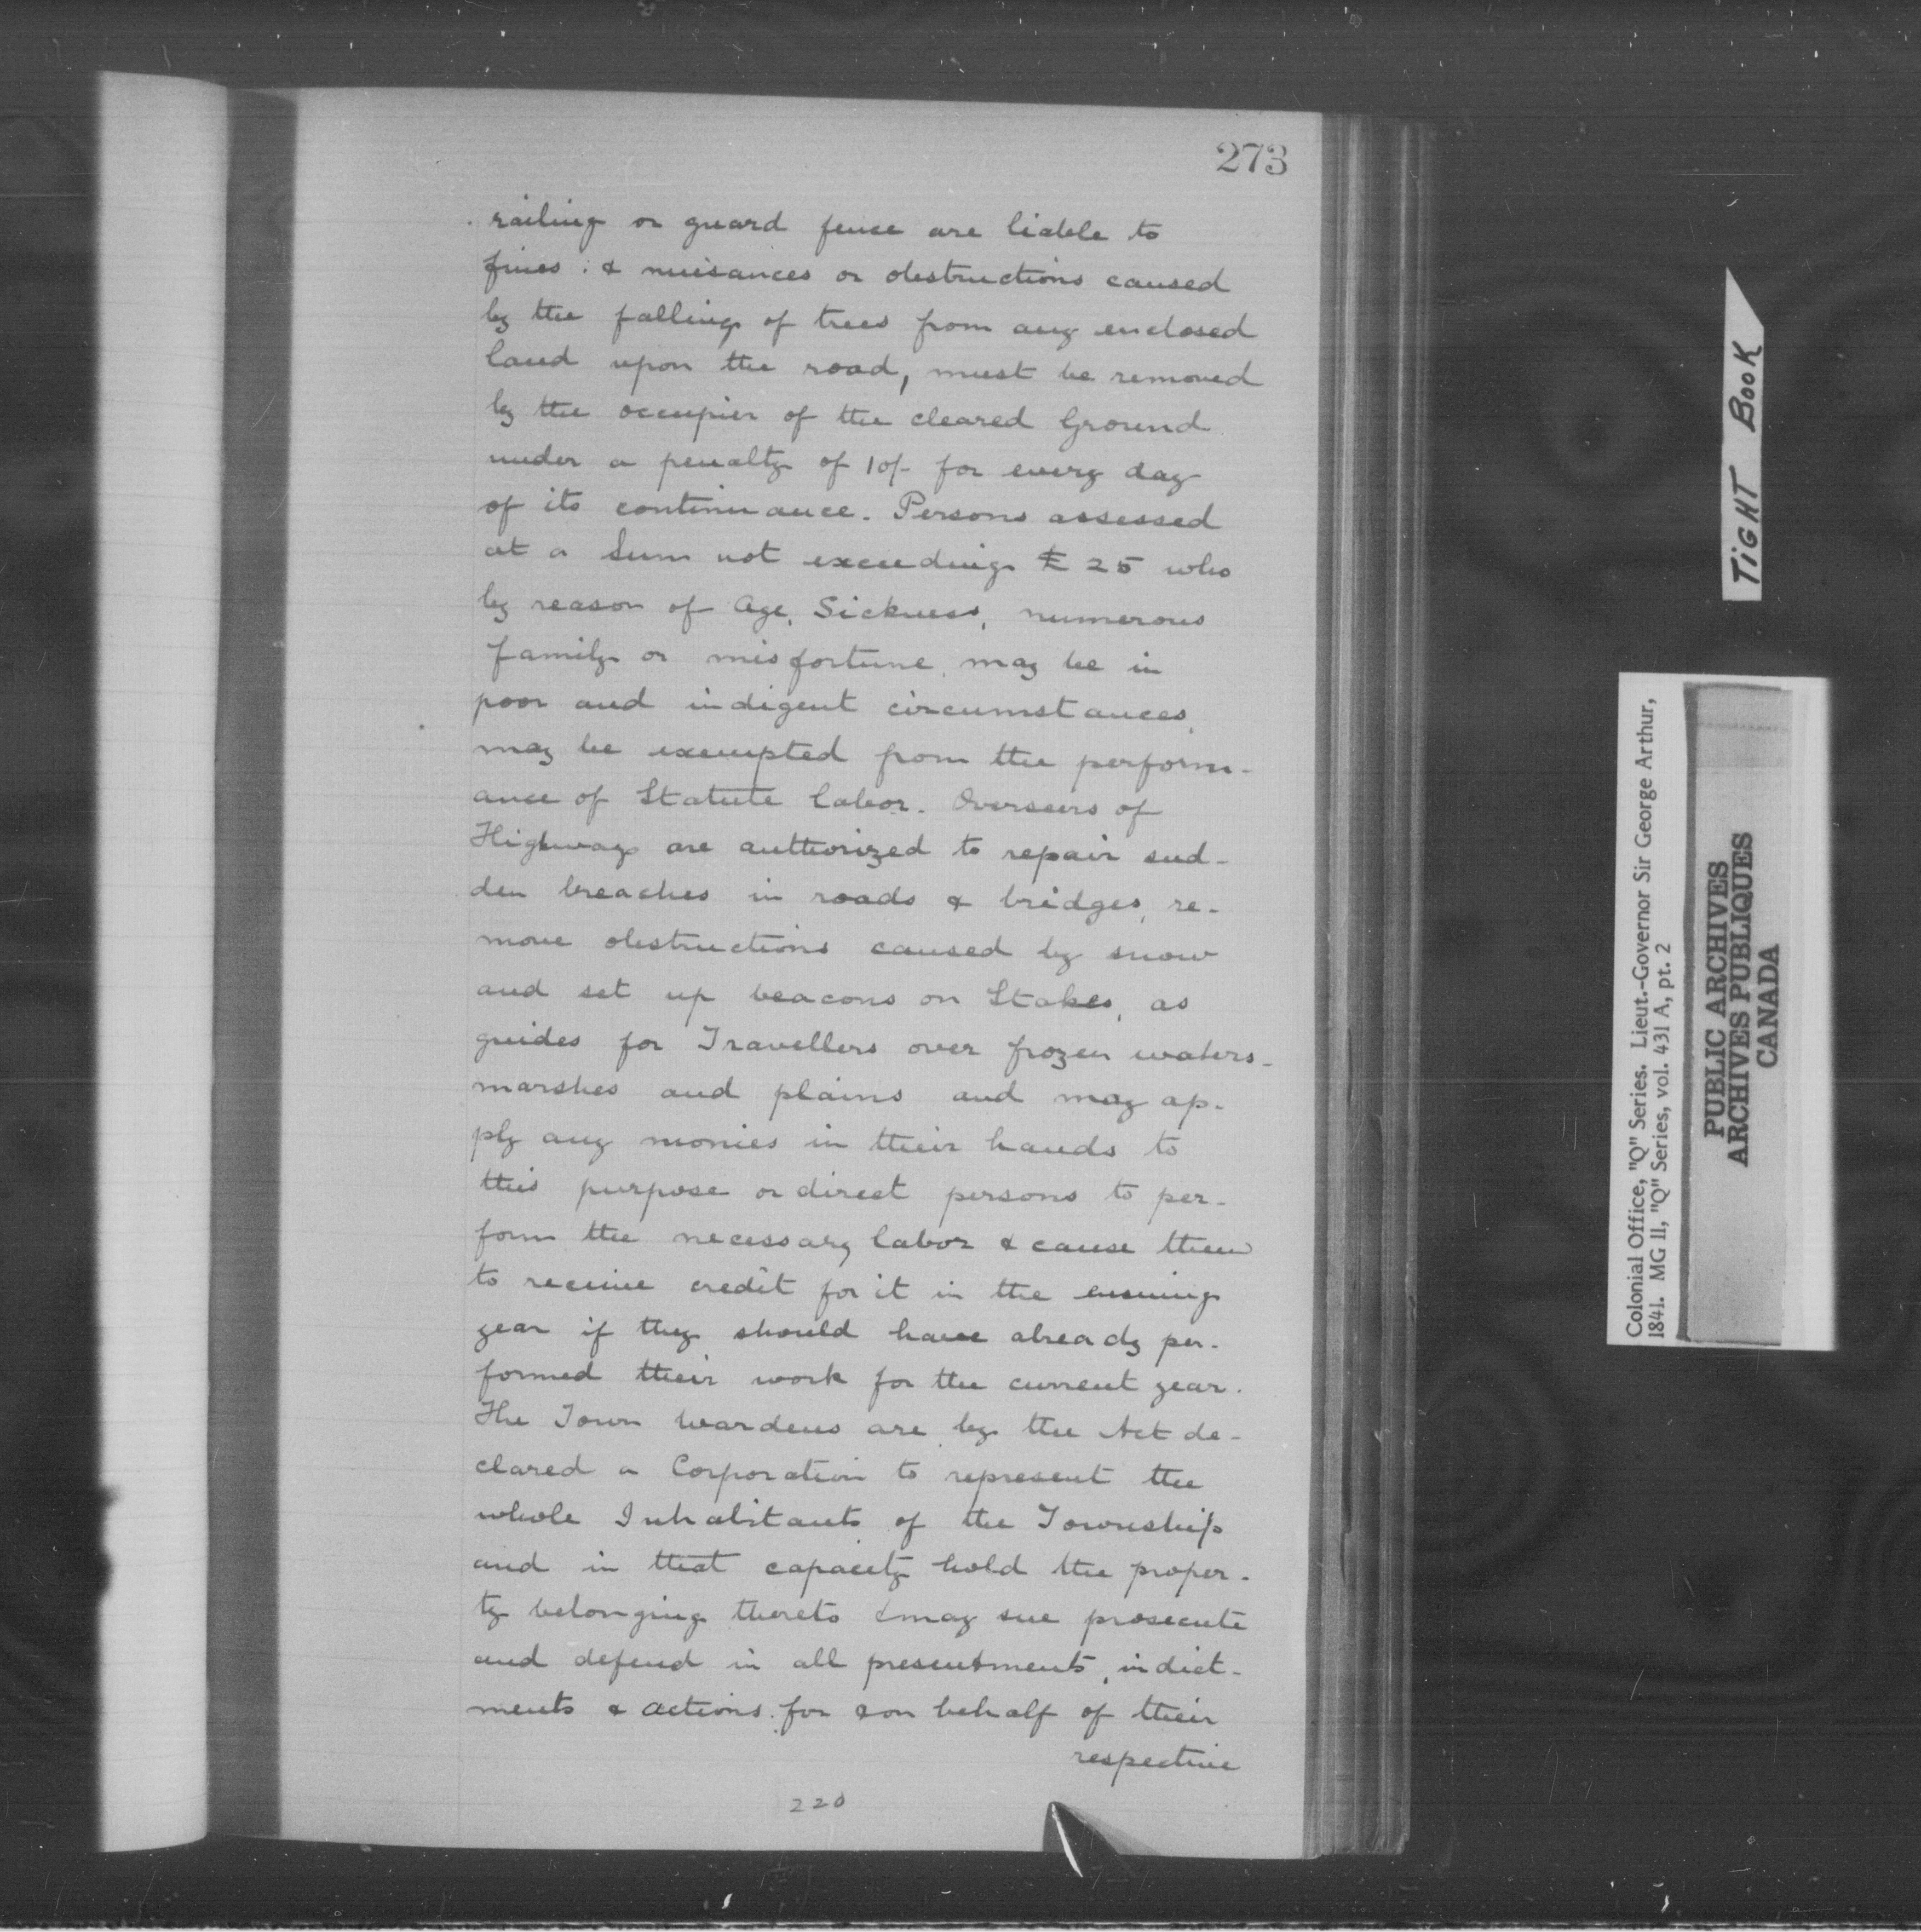 273
railing or guard fence are liable to
fines : & nuisances or obstructions caused
by the falling of trees from any enclosed
land upon the road, must be removed
by the occupier of the cleared Ground
under a penalty of 10/- for every day
of its continuance. Persons assessed
at a Sum not exceeding £ 25 who
by reason of Age, Sickness, numerous
family or misfortune, may be in
poor and indigent circumstances,
may be exempted from the perform-
ance of Statute labor. Overseers of
Highways are authorized to repair sud-
den breaches in roads & bridges, re-
move obstructions caused by snow
and set up beacons on Stakes, as
guides for Travellers over frozen waters-
marshes and plains and may ap-
ply any monies in their hands to
this purpose or direct persons to per-
form the necessary labor & cause them
to receive credit for it in the ensuing
year if they should have already per-
formed their work for the current year.
The Town Wardens are by the Act de-
clared a Corporation to represent the
whole Inhabitants of the Township
and in that capacity hold the proper-
ty belonging thereto & may sue prosecute
and defend in all presentments, indict-
ments & actions. for & on behalf of their
respective
220
TIGHT BOOK
Colonial Office, "Q" Series. Lieut.-Governor Sir George Arthur,
1841. MG 11, "Q" Series, vol. 431 A, pt. 2
PUBLIC ARCHIVES
ARCHIVES PUBLIQUES
CANADA